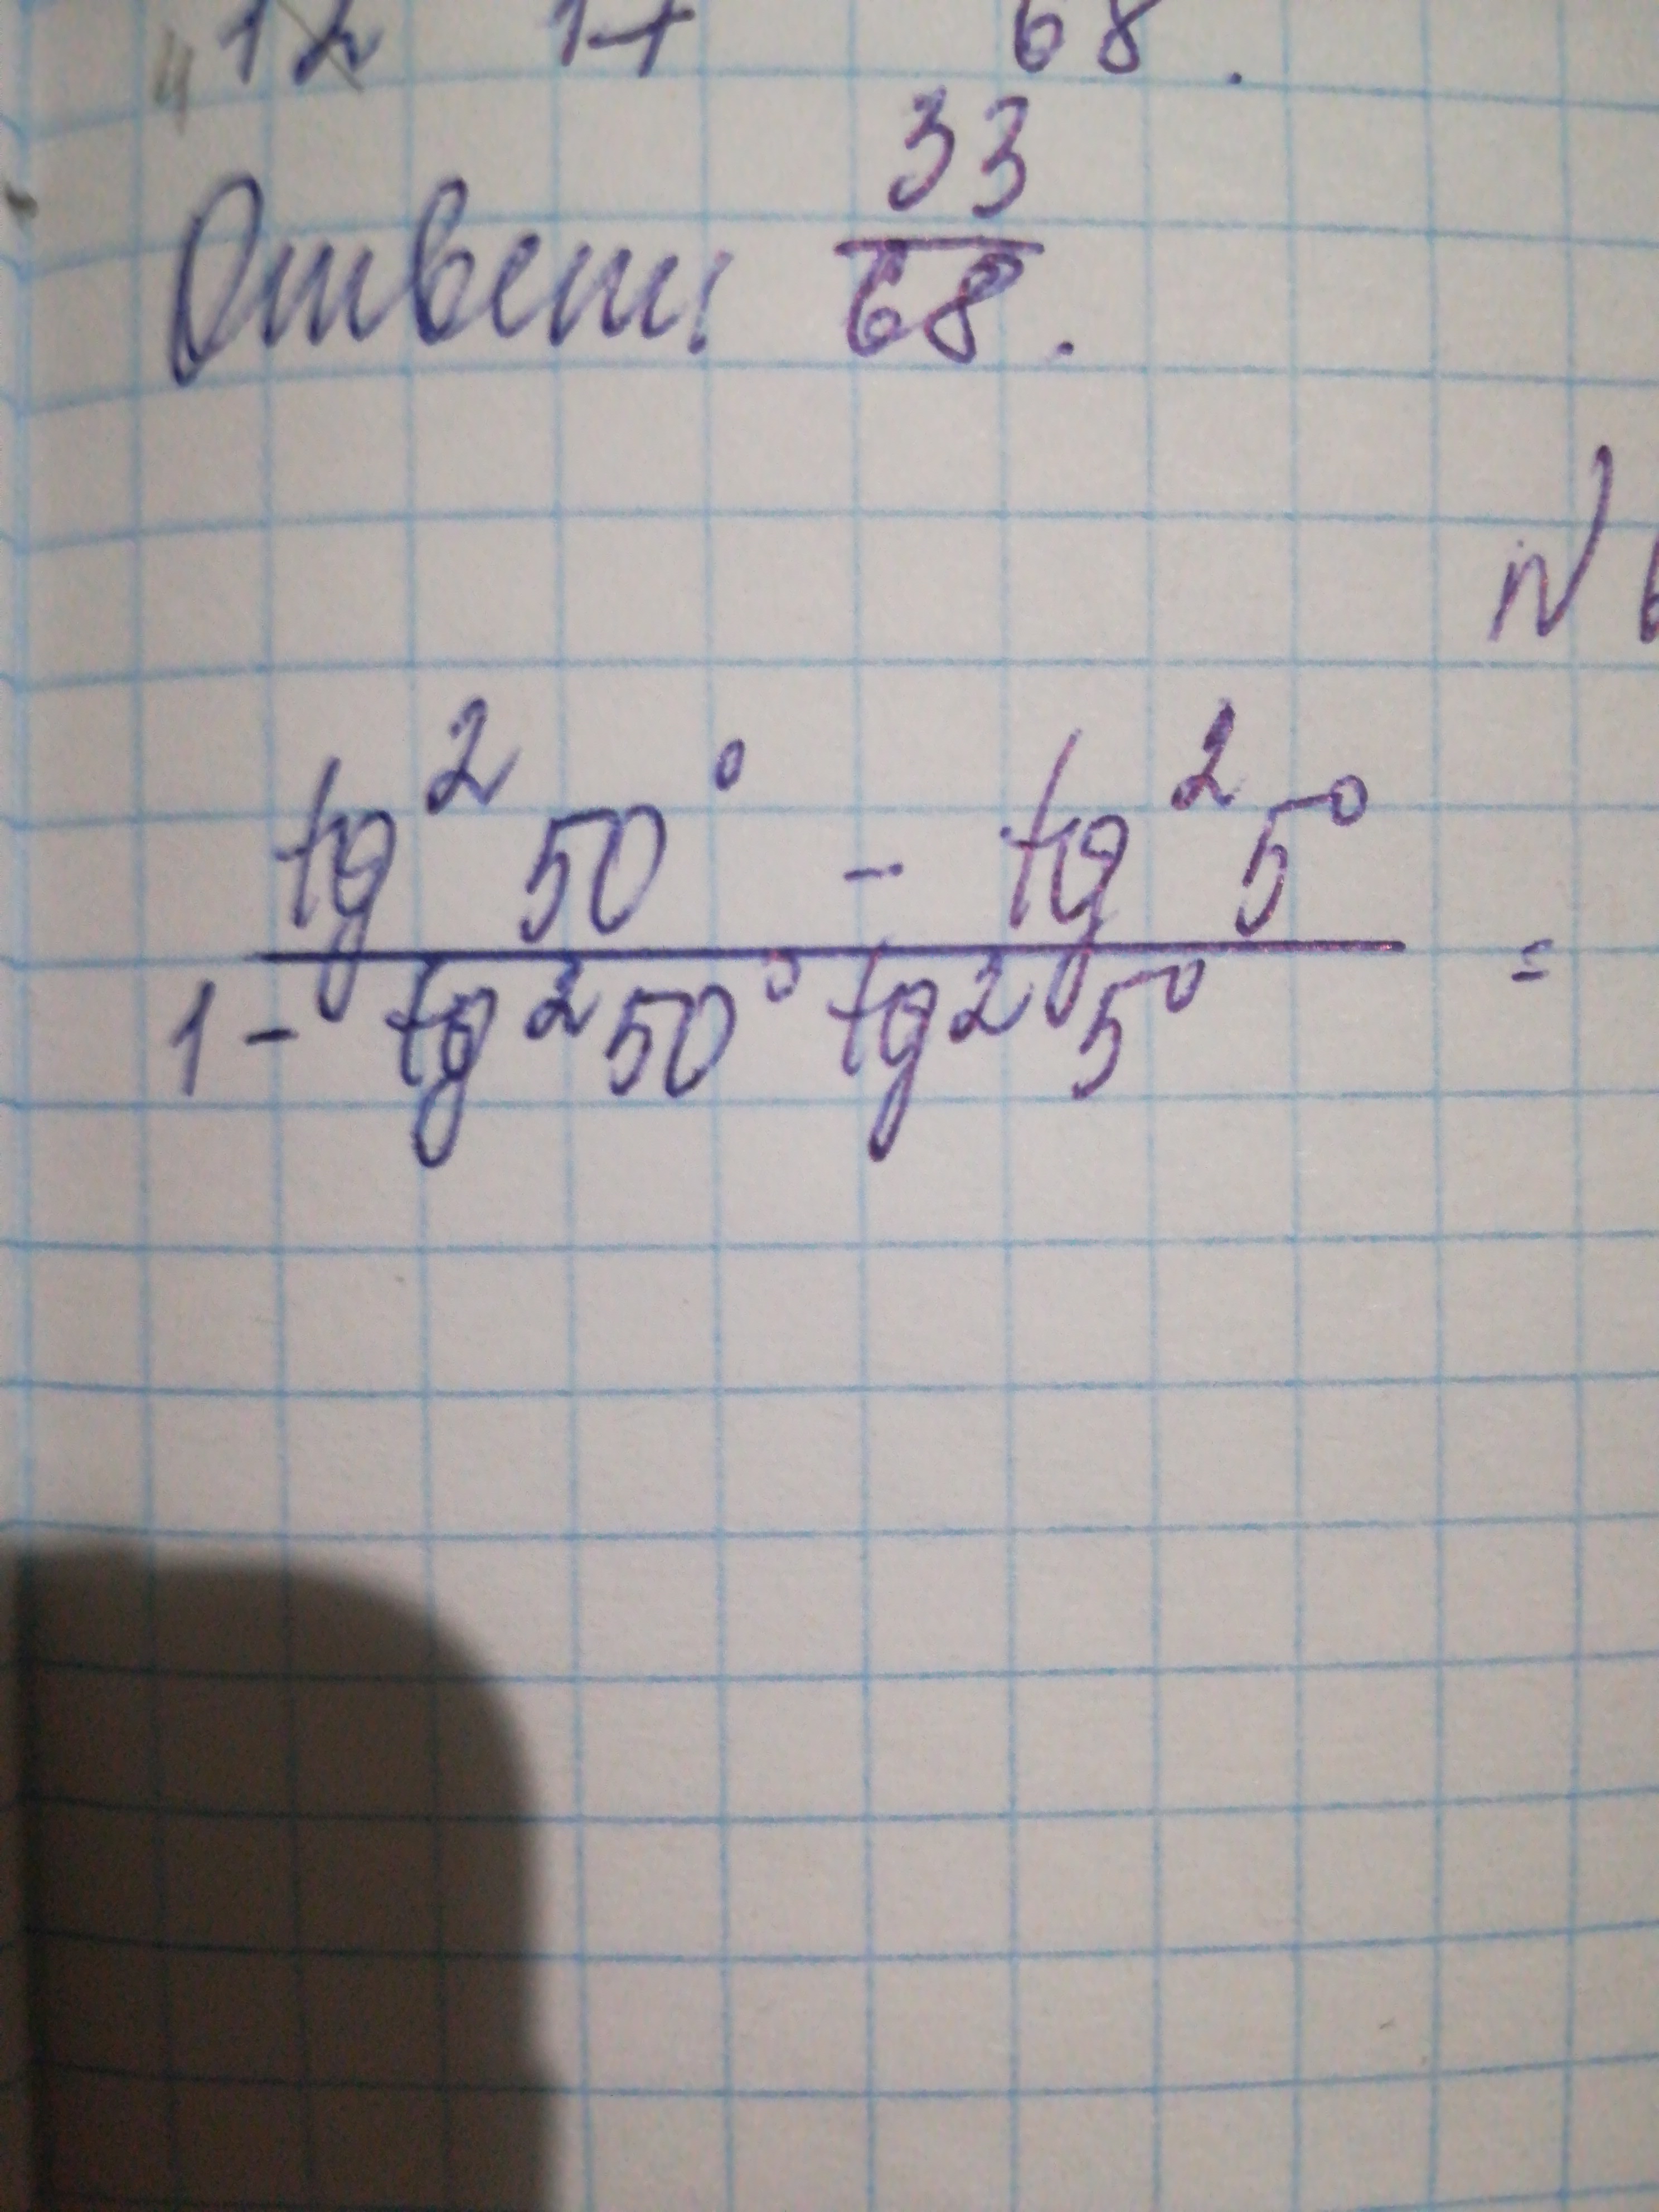 68.
Ответ: 33/68.
N
tg² 50° - tg² 5°
1 - tg² 50° tg² 5° =